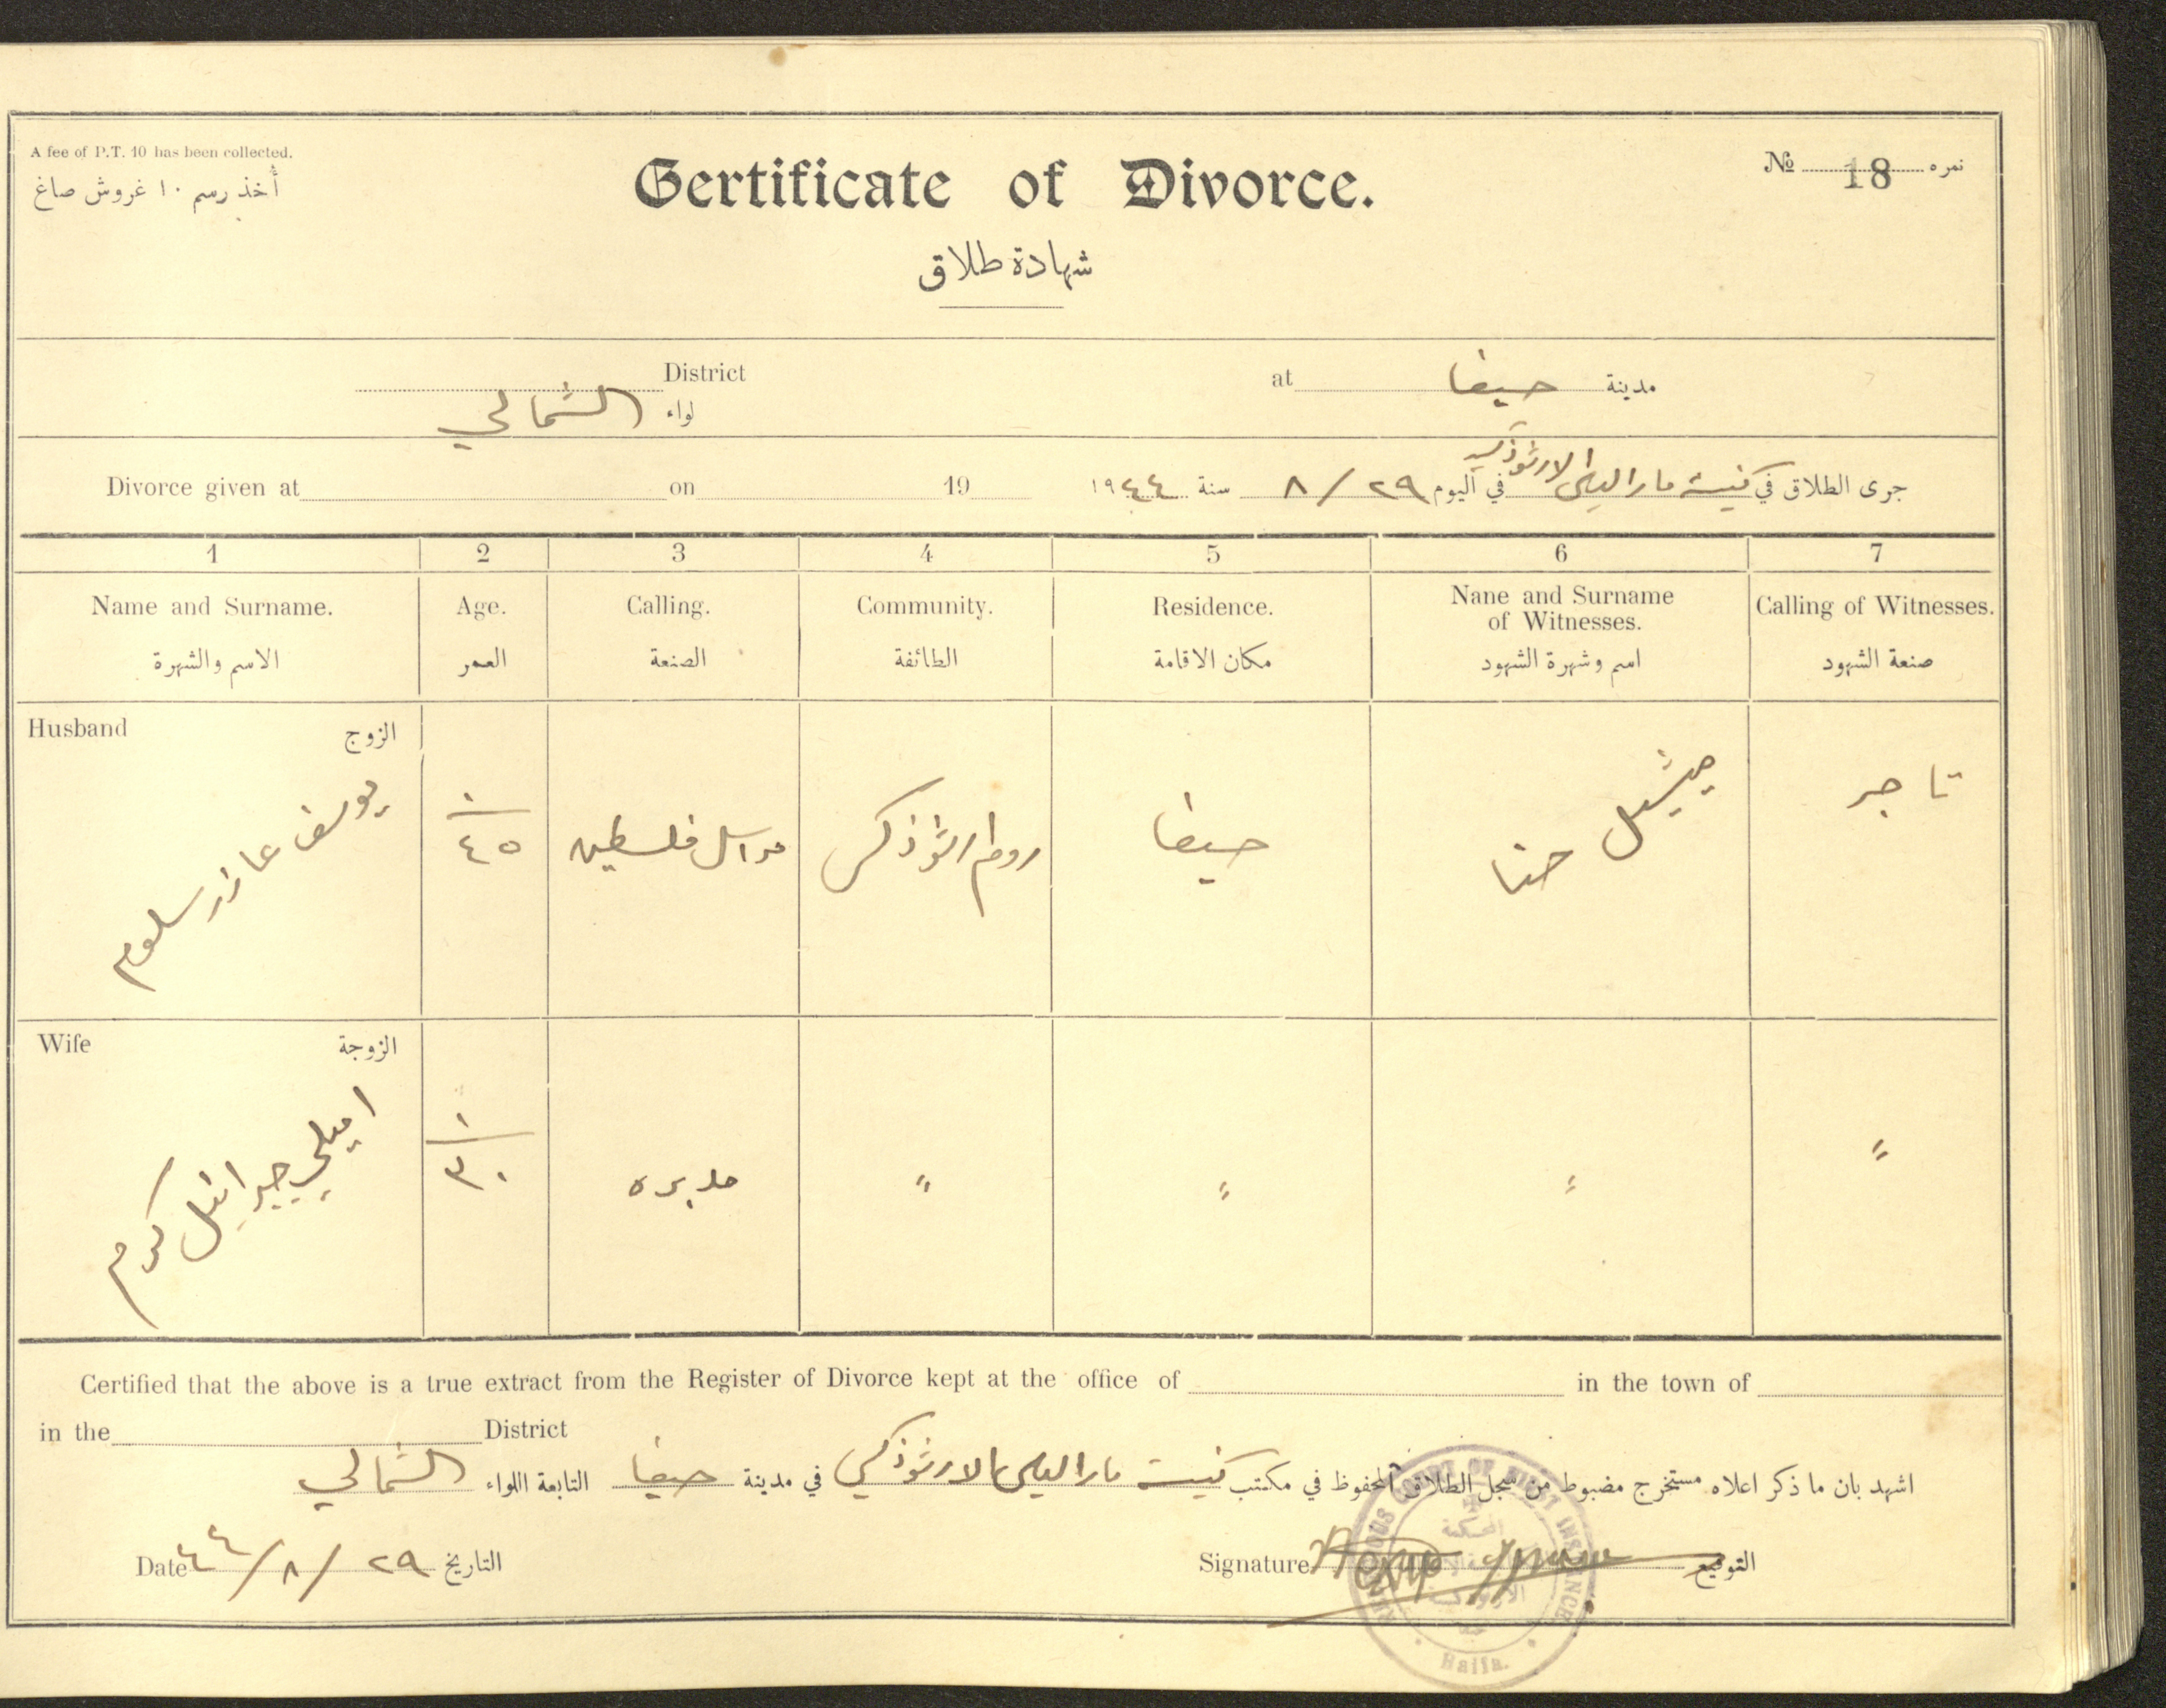 A fee of P.T. 10 has been collected.
أخذ رسم ١٠ غروش صاغ
Certificate of Divorce.
№ 18 نمره
شهادة طلاق
District
لواء الشمالي
at حيفا مدينة
Divorce given at on 19
جرى الطلاق في كنيسة مار الياس الارثوذكسية في اليوم ٢٩/٨ سنة ١٩٤٤
1 2 3 4 5 6 7
Name and Surname. Age. Calling. Community. Residence. Nane and Surname of Witnesses. Calling of Witnesses.
الاسم والشهرة العمر الصنعة الطائفة مكان الاقامة اسم وشهرة الشهود صنعة الشهود
Husband الزوج
يوسف عازر سلوم ١ ٤٥ فلسطين روم ارثوذكس حيفا ميشيل حنا تاجر
Wife الزوجة
اميلي جبرائيل كرم ١ ٣٠ مدبره " " " "
Certified that the above is a true extract from the Register of Divorce kept at the office of in the town of
in the District
اشهد بان ما ذكر اعلاه مستخرج مضبوط من سجل الطلاق المحفوظ في مكتب كنيسة مار الياس الارثوذكسي في مدينة حيفا التابعة اللواء الشمالي
Date ٤٤/٨/٢٩ التاريخ
Signature التوقيع
RELIGIOUS COURT OF FIRST INSTANCE
المحكمة
Haifa.